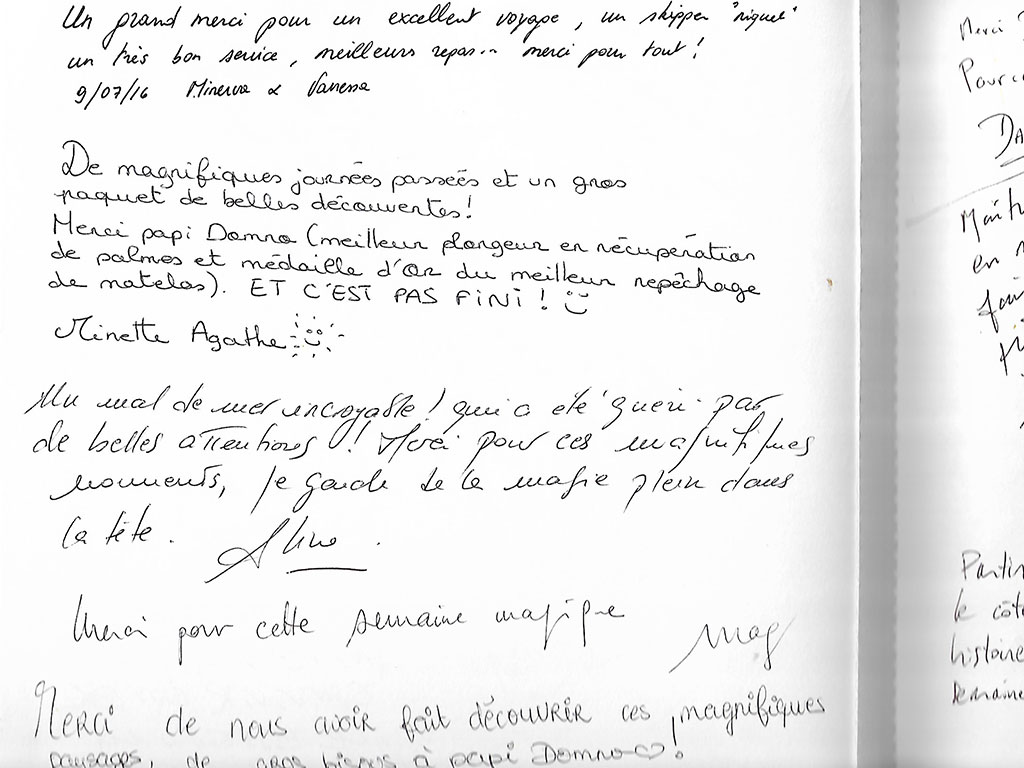 Un grand merci pour un excellent voyage, un skipper "niquel"
un très bon service, meilleurs repas... merci pour tout !
9/07/16 Minerva & Vanessa
De magnifiques journées passées et un gros
paquet de belles découvertes !
Merci papi Domno (meilleur plongeur en récupération
de palmes et médaille d'or du meilleur repêchage
de matelas). ET C'EST PAS FINI !
Minette Agathe
Un mal de mer incroyable ! qui a été guéri par
de belles attentions ! Merci pour ces magnifiques
moments, je garde de la magie plein dans
la tête.
Merci pour cette semaine magique
Mag
Merci de nous avoir fait découvrir ces magnifiques
paysages, de gros bisous à papi Domno ♡ !
Merci
Pour
Partir
le côté
histoire
semaine